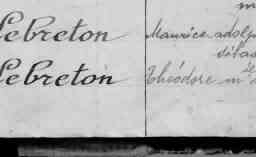 Lebreton Maurice adolp
Lebreton Théodore m